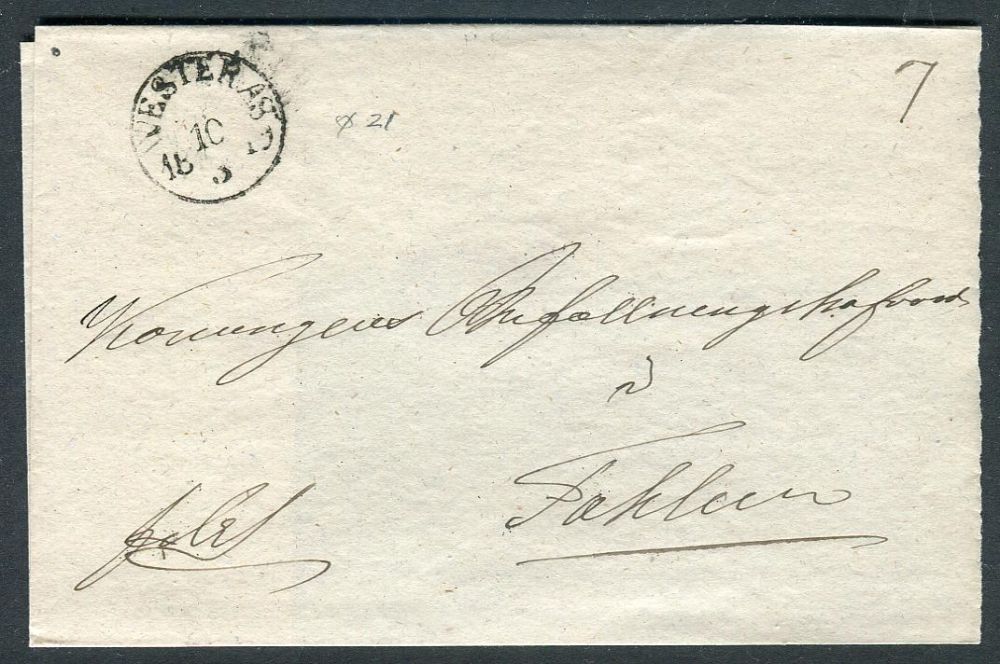 WESTERÅS
10
18 3
7
x 21
Konungens Befallningshafvande
i
Fahlun